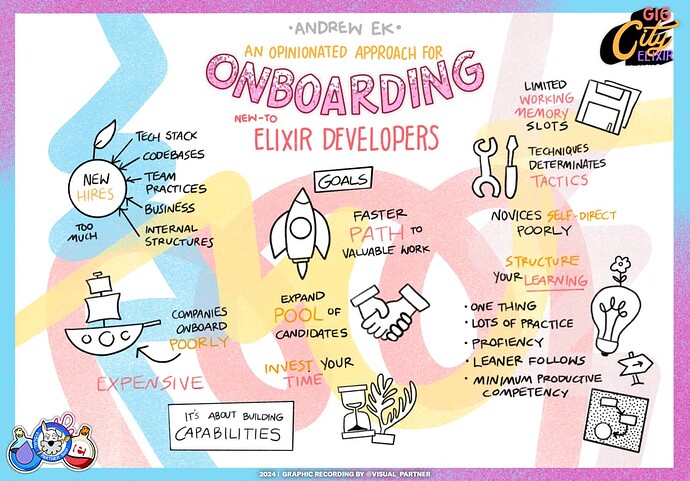 •ANDREW EK•
AN OPINIONATED APPROACH FOR
ONBOARDING
NEW-TO
ELIXIR DEVELOPERS
GIG
City
ELIXIR
NEW
HIRES
TOO
MUCH
TECH STACK
CODEBASES
TEAM
PRACTICES
BUSINESS
INTERNAL
STRUCTURES
COMPANIES
ONBOARD
POORLY
EXPENSIVE
GOALS
FASTER
PATH TO
VALUABLE WORK
EXPAND
POOL OF
CANDIDATES
INVEST YOUR
TIME
IT'S ABOUT BUILDING
CAPABILITIES
LIMITED
WORKING
MEMORY
SLOTS
TECHNIQUES
DETERMINATES
TACTICS
NOVICES SELF-DIRECT
POORLY
STRUCTURE
YOUR LEARNING
• ONE THING
• LOTS OF PRACTICE
• PROFIENCY
• LEANER FOLLOWS
• MINIMUM PRODUCTIVE
COMPETENCY
2024 | GRAPHIC RECORDING BY @VISUAL_PARTNER